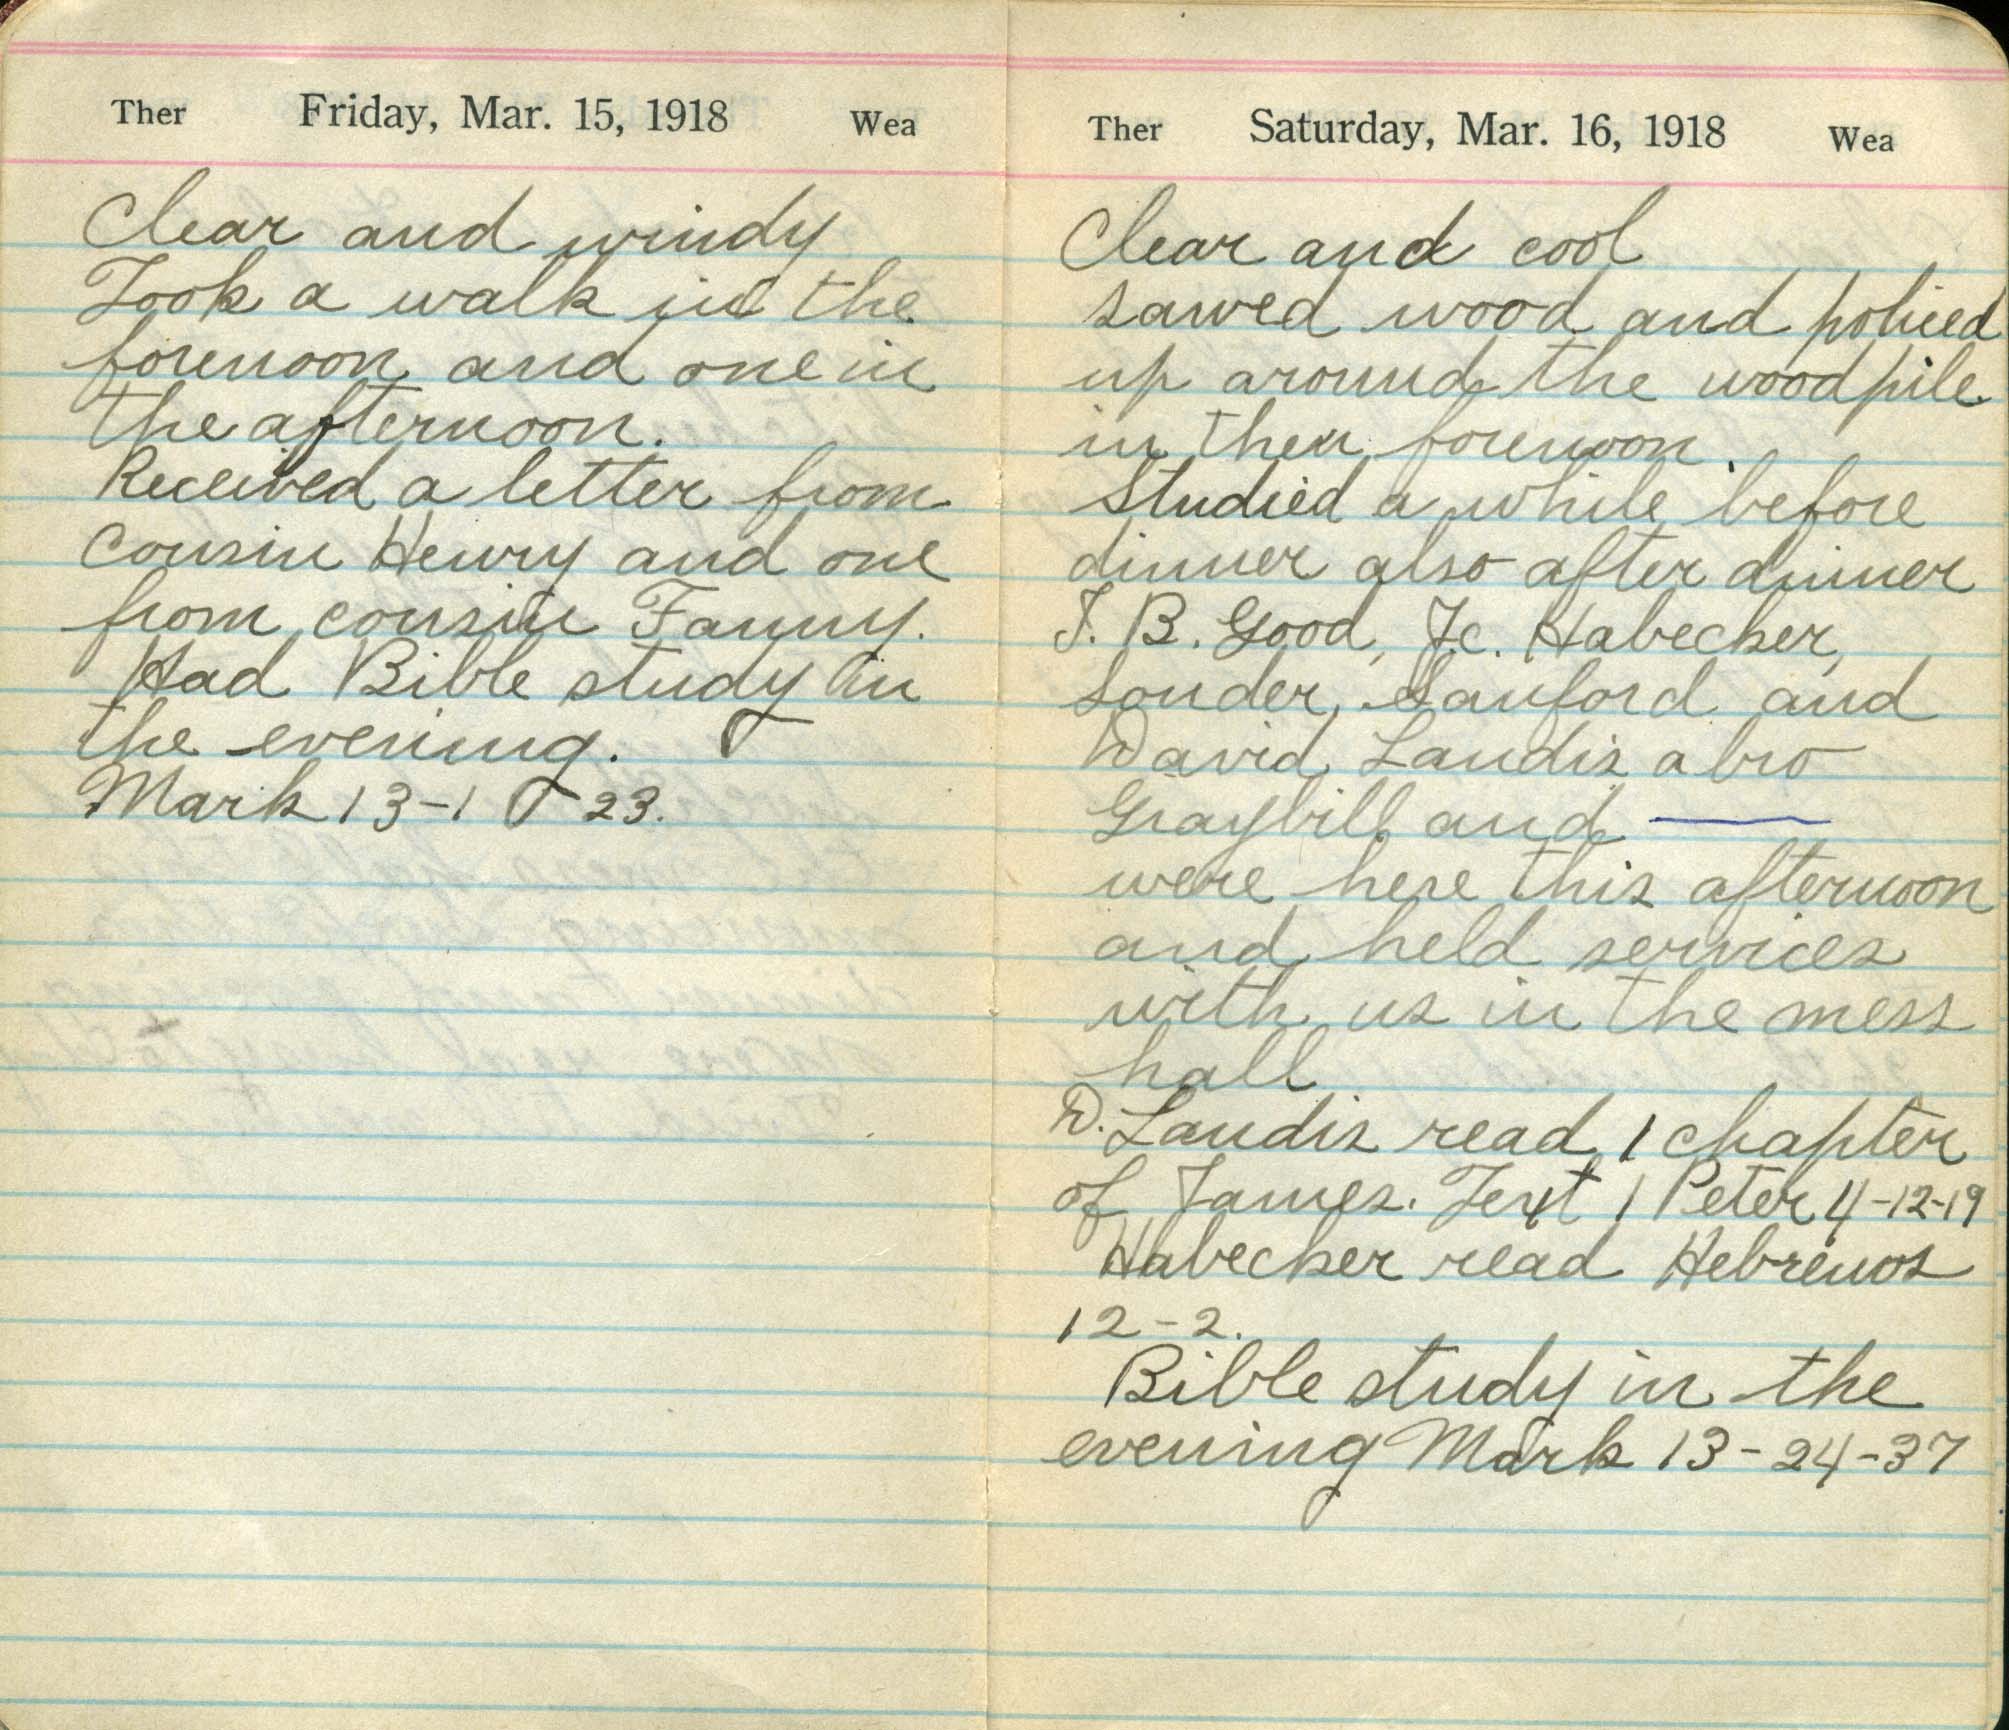 Ther Friday, Mar. 15, 1918 Wea
Clear and windy
Took a walk in the
forenoon and one in
the afternoon.
Received a letter from
cousin Henry and one
from cousin Fanny.
Had Bible study in
the evening.
Mark 13-1 23.
Ther Saturday, Mar. 16, 1918 Wea
Clear and cool
sawed wood and policed
up around the woodpile
in then forenoon.
Studied a while before
dinner also after dinner
J. B. Good, J.C. Habecker,
Souder, Sanford and
David Landis a bro
Graybill and —
were here this afternoon
and held services
with us in the mess
hall
D. Landis read 1 chapter
of James. Text 1 Peter 4-12-19
Habecker read Hebrews
12-2.
Bible study in the
evening Mark 13-24-37